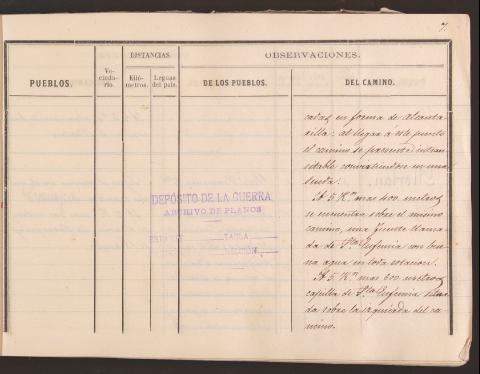 7
DISTANCIAS.
OBSERVACIONES.
PUEBLOS.
Ve-
cinda-
rio.
Kiló-
metros.
Leguas
del país.
DE LOS PUEBLOS.
DEL CAMINO.
cadas en forma de alcanta-
rilla: al llegar a este punto
el camino se presenta intran-
sitable convirtiendose en una
senda.
A 5 Km mas 400 metros
se encuentra sobre el mismo
camino, una fuente llama-
da de Sta Eufemia con bue-
na agua en toda estacion.
A 5 Km mas 600 metros
capilla de Sta Eufemia situa-
da sobre la izquierda del ca-
mino.
DEPÓSITO DE LA GUERRA
ARCHIVO DE PLANOS
TABLA